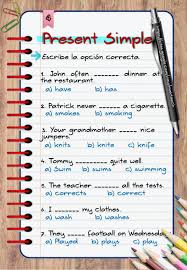 Present Simple
Escribe la opción correcta.
1. John often _______ dinner at
the restaurant.
a) have b) has
2. Patrick never _____ a cigarette.
a) smokes b) smokes
3. Your grandmother _____ nice
jumpers.
a) knits b) knits c) knifs
4. Tommy _____ quite well.
a) Swim b) Swims
5. The teacher _____ all the tests.
a) correct b) corrects
6. I _______ my clothes.
a) wash b) washes
7. They _____ football on Wednesday
a) Played b) plays c) play